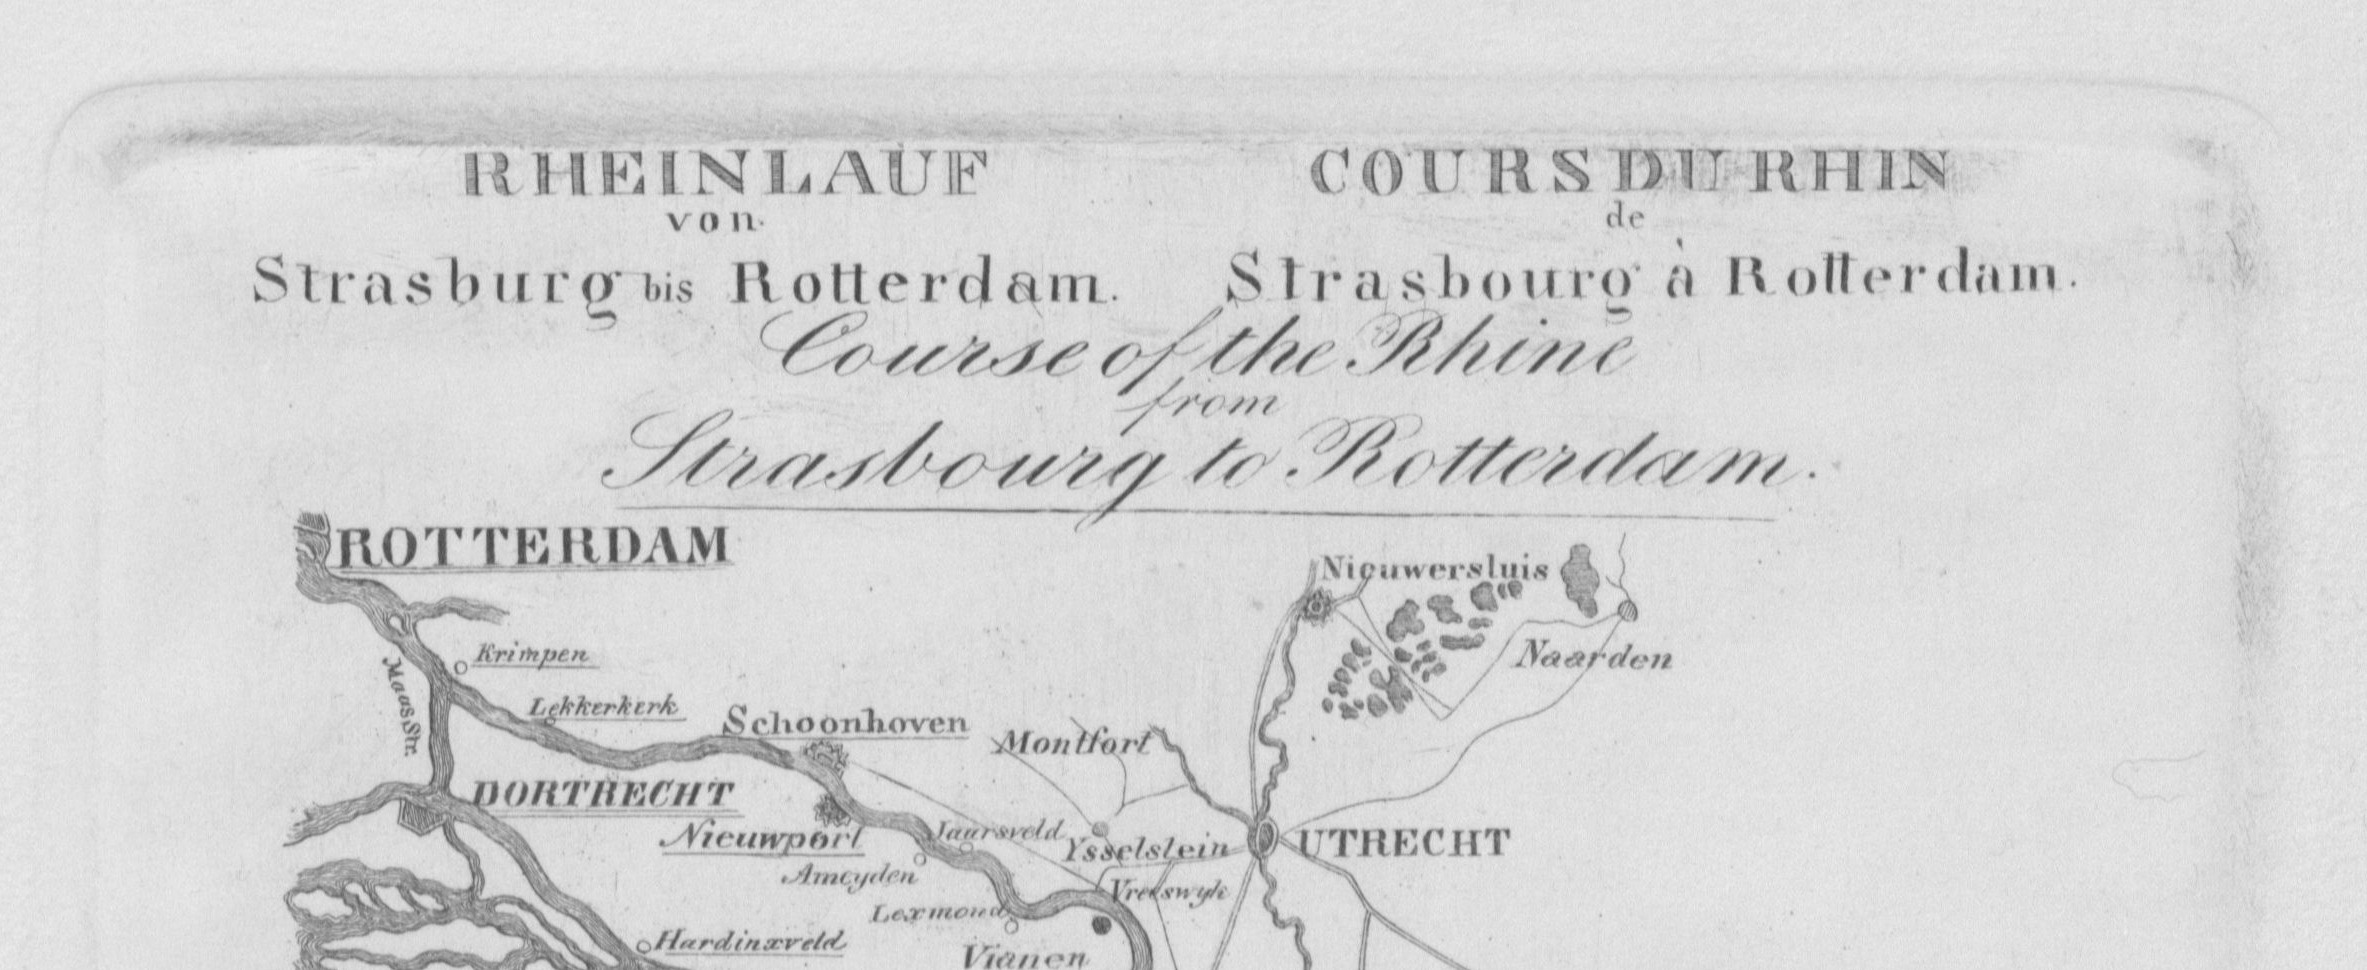 RHEINLAUF
von
Strasburg bis Rotterdam.
COURS DU RHIN
de
Strasbourg à Rotterdam.
Course of the Rhine
from
Strasbourg to Rotterdam.
ROTTERDAM
Nieuwersluis
Krimpen
Naarden
Maas Str.
Lekkerkerk
Schoonhoven
Montfort
DORTRECHT
Nieuwport
Jaarsveld
Ysselstein
UTRECHT
Ameyden
Vreeswyk
Lexmond
Hardinxveld
Vianen